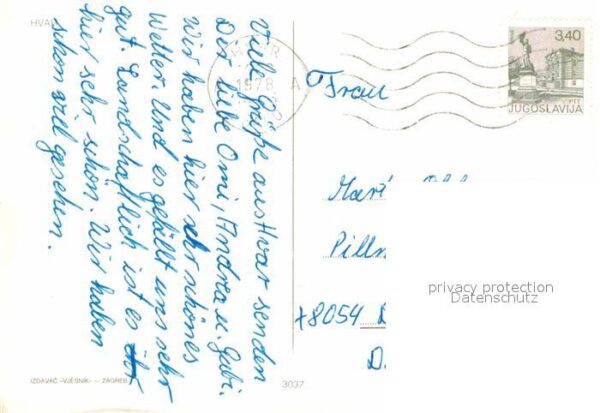 HVAR
Viele Grüße aus Hvar senden
Dir liebe Omi, Andrea u. Gabi.
Wir haben hier sehr schönes
Wetter. Und es gefällt uns sehr
gut. Landschaftlich ist es
hier sehr schön. Wir haben
schon viel gesehen.
IZDAVAČ »VJESNIK« — ZAGREB
3037
HVAR
1978
A
3,40
PTT
JUGOSLAVIJA
Frau
Pilln
8054
D.
privacy protection
Datenschutz